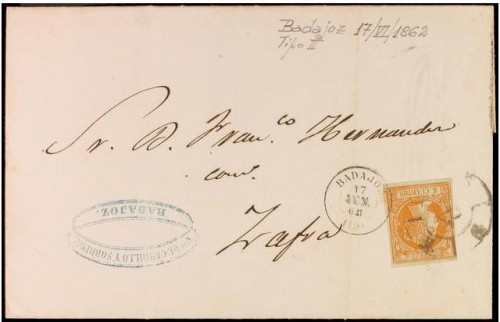 Badajoz 17/VI/1862
Tipo II
Sr. D. Fran.co Hernandez
Zafra
BADAJOZ
17
JUN.
62
4 CUARTOS
Va. DE CARRILLO Y SOBRINOS
BADAJOZ.